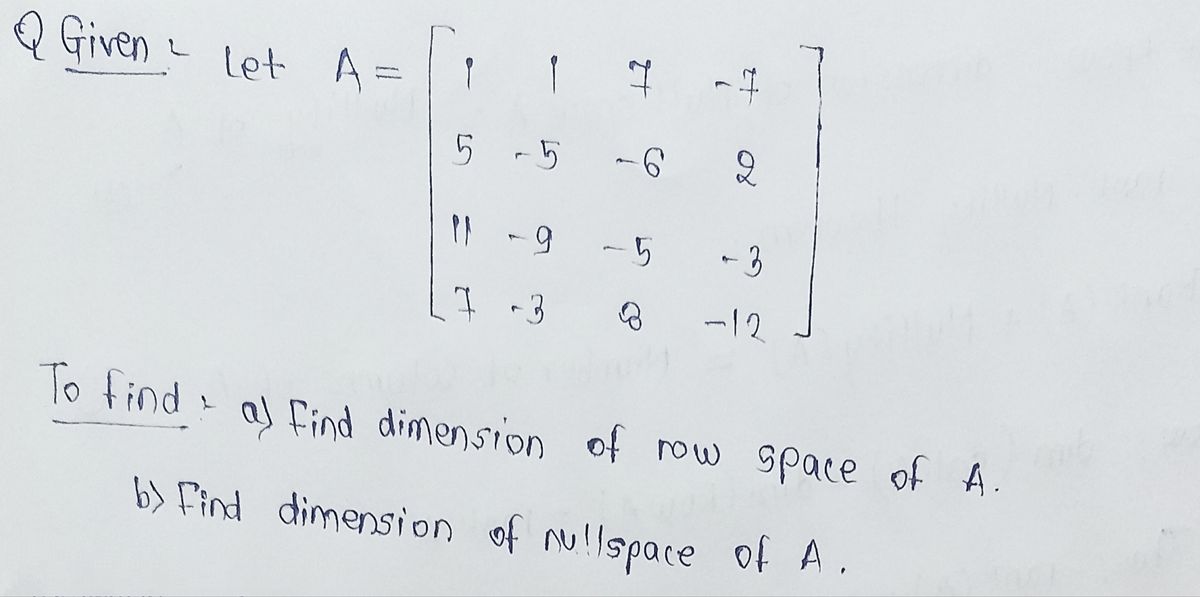 Q Given :- Let A = [ 1 1 7 -7
5 -5 -6 2
11 -9 -5 -3
7 -3 8 -12 ]
To find :- a) Find dimension of row space of A.
b) Find dimension of nullspace of A.